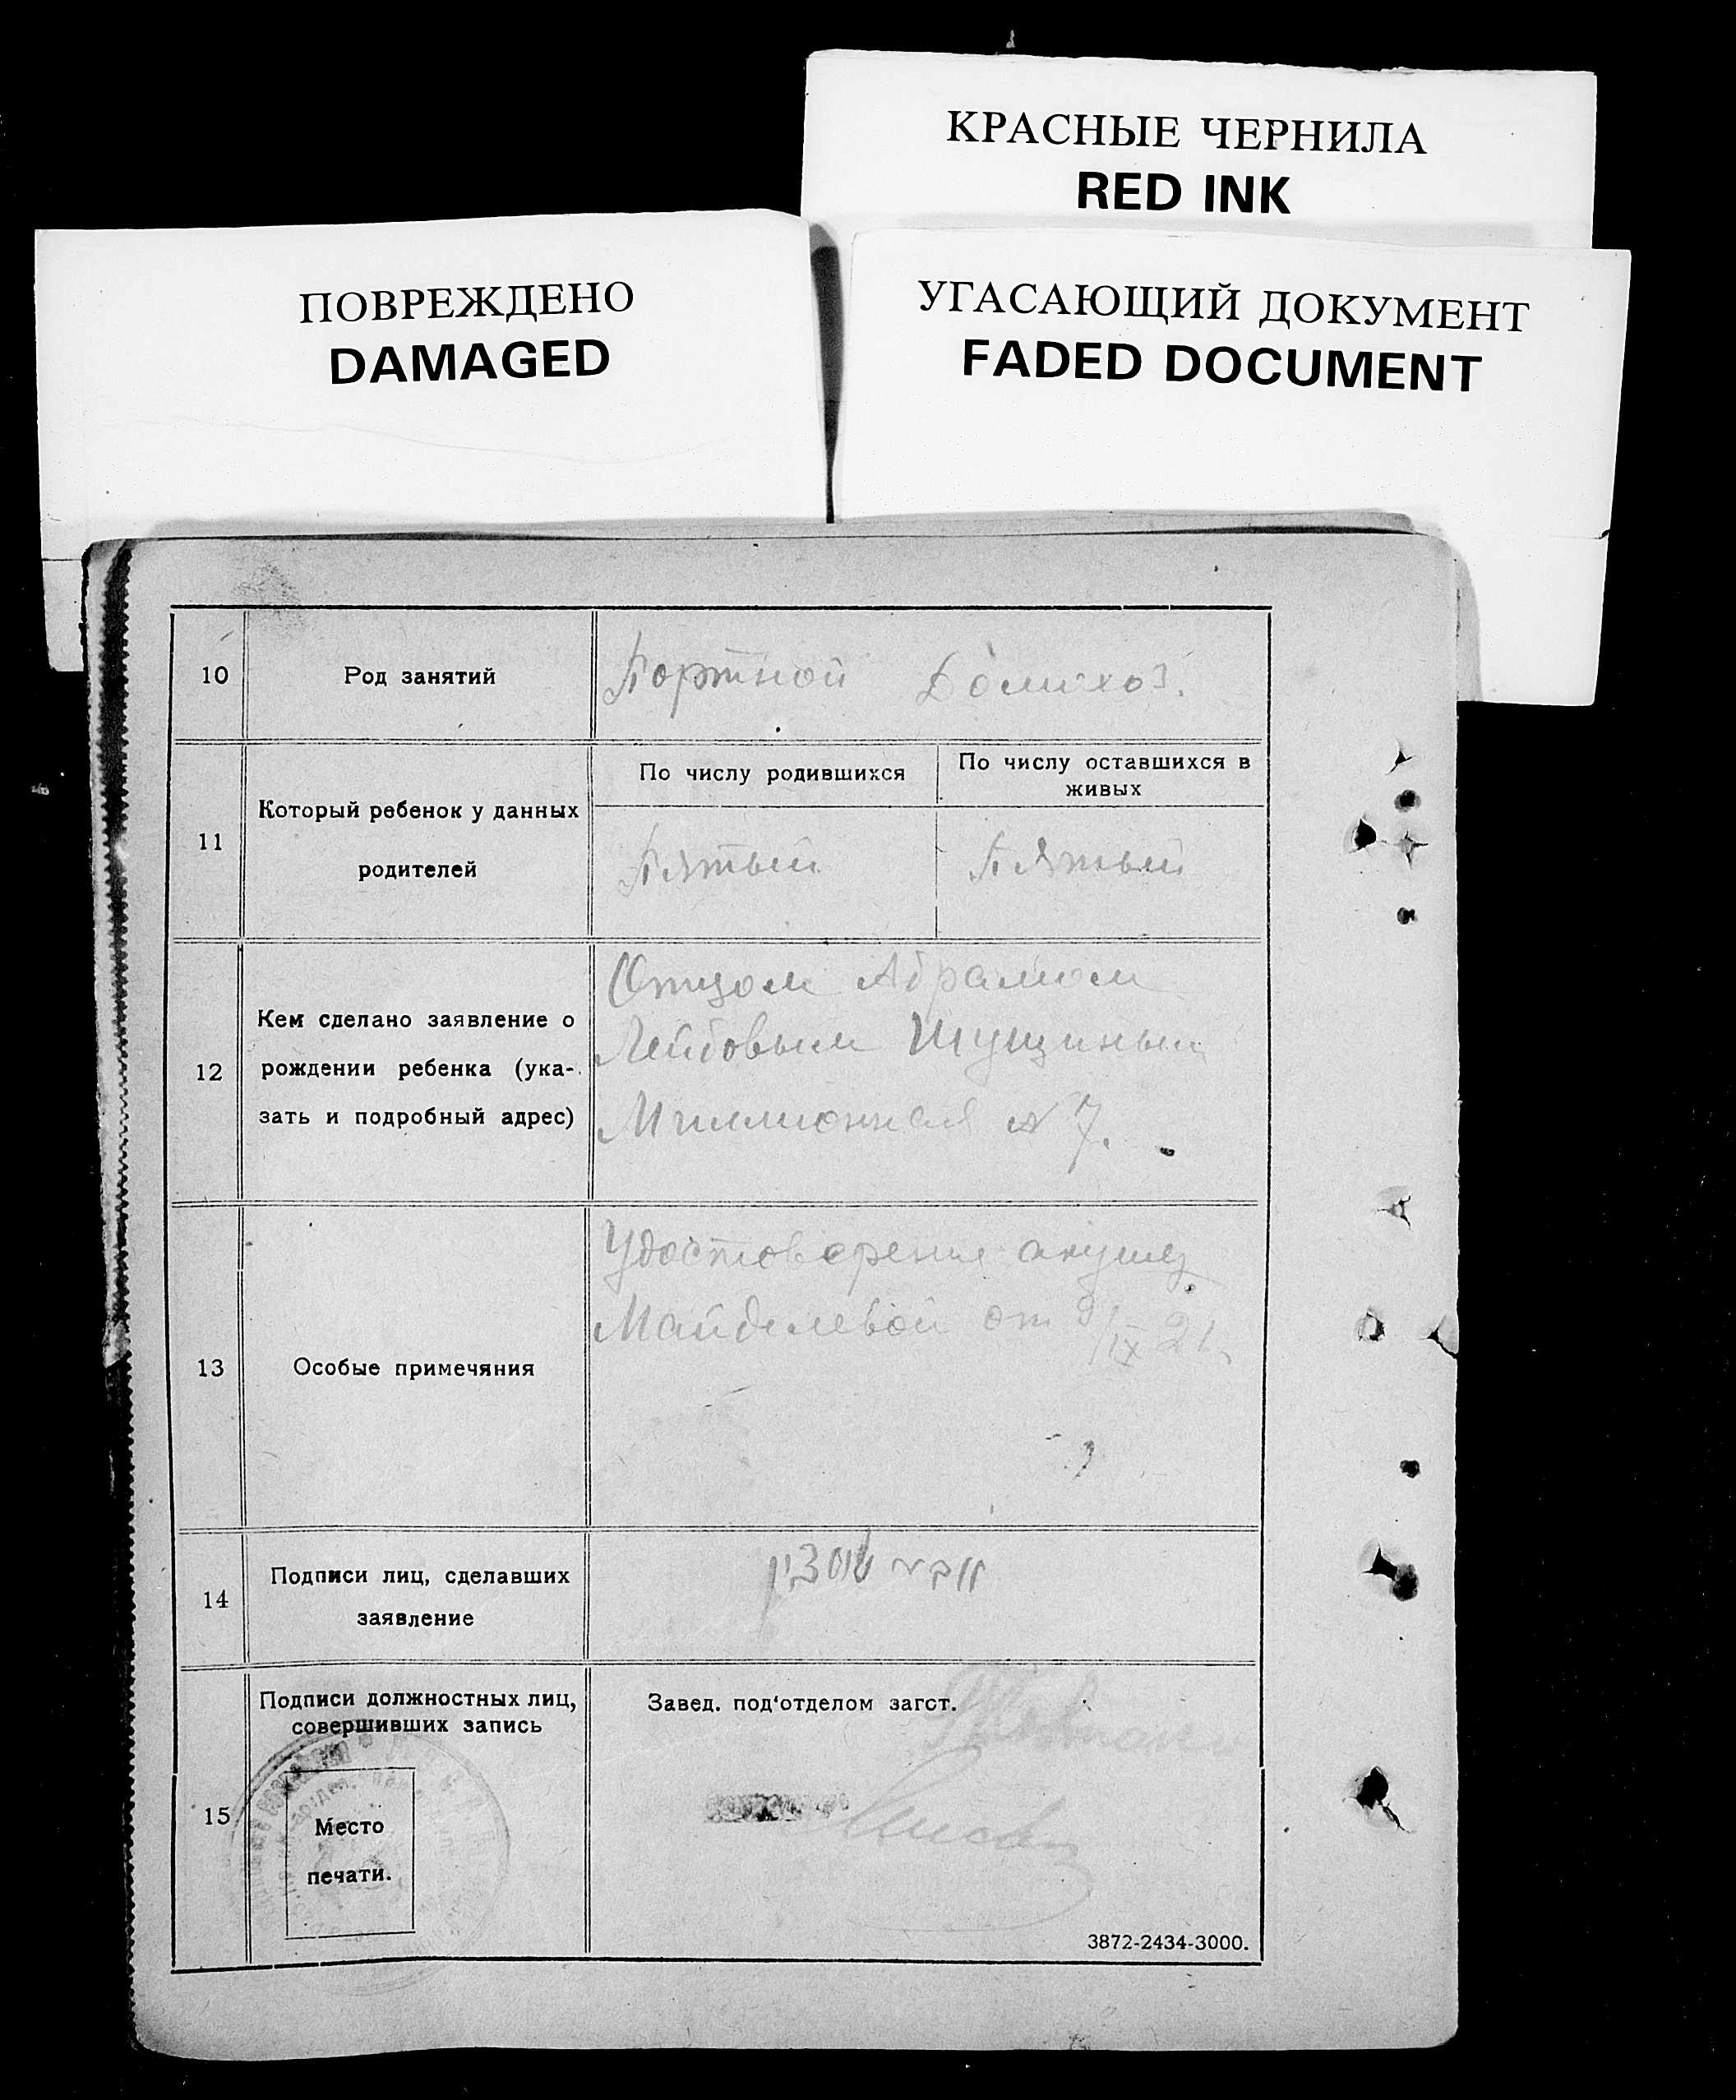 КРАСНЫЕ ЧЕРНИЛА
RED INK
ПОВРЕЖДЕНО
DAMAGED
УГАСАЮЩИЙ ДОКУМЕНТ
FADED DOCUMENT
10
Род занятий
Портной Домохоз.
11
Который ребенок у данных
родителей
По числу родившихся
По числу оставшихся в
живых
Пятый
Пятый
12
Кем сделано заявление о
рождении ребенка (ука-
зать и подробный адрес)
Отцом Абрамом
Лейбовым Шущиным
Миллионная № 7.
13
Особые примечяния
Удостоверение акуш
от 9/IX 21
14
Подписи лиц, сделавших
заявление
15
Подписи должностных лиц,
совершивших запись
Место
печати.
Завед. под'отделом загст.
3872-2434-3000.